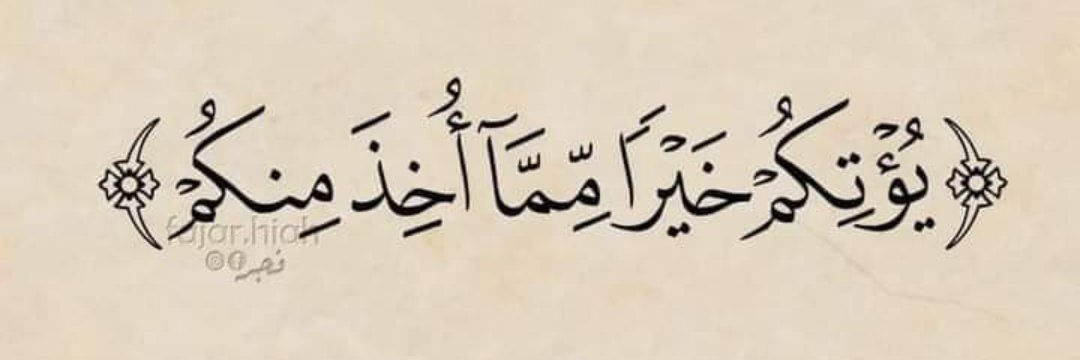 ﴿يُؤْتِكُمْ خَيْرًا مِّمَّآ أُخِذَ مِنكُمْ﴾
fajar.hiah
فجر